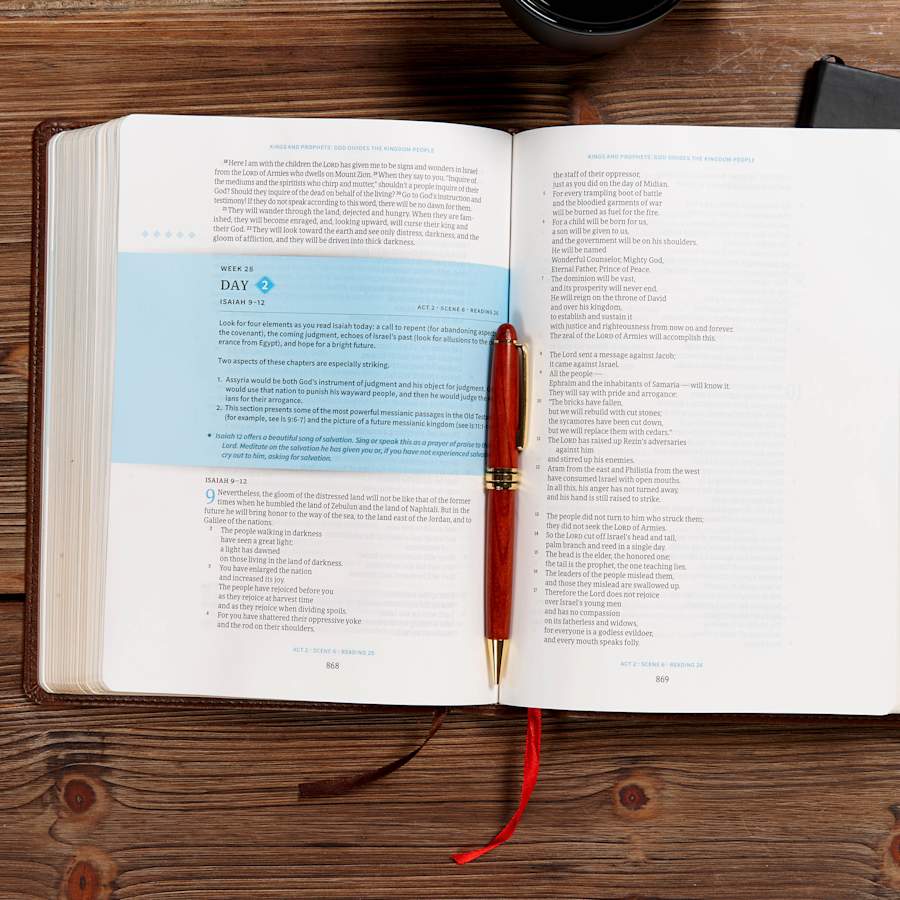 KINGS AND PROPHETS: GOD GUIDES THE KINGDOM PEOPLE
¹⁸Here I am with the children the LORD has given me to be signs and wonders in Israel
from the LORD of Armies who dwells on Mount Zion. ¹⁹When they say to you, "Inquire of
the mediums and the spiritists who chirp and mutter," shouldn't a people inquire of their
God? Should they inquire of the dead on behalf of the living? ²⁰Go to God's instruction and
testimony! If they do not speak according to this word, there will be no dawn for them.
²¹They will wander through the land, dejected and hungry. When they are fam-
ished, they will become enraged, and, looking upward, will curse their king and
their God. ²²They will look toward the earth and see only distress, darkness, and the
gloom of affliction, and they will be driven into thick darkness.
WEEK 28
DAY 2
ISAIAH 9–12
ACT 2 • SCENE 6 • READING 26
Look for four elements as you read Isaiah today: a call to repent (for abandoning
the covenant), the coming judgment, echoes of Israel's past (look for allusions to the
erance from Egypt), and hope for a bright future.
Two aspects of these chapters are especially striking.
1. Assyria would be both God's instrument of judgment and his object for judgment.
would use that nation to punish his wayward people, and then he would judge the
ians for their arrogance.
2. This section presents some of the most powerful messianic passages in the Old
(for example, see Is 9:6-7) and the picture of a future messianic kingdom (see Is 11:1-
Isaiah 12 offers a beautiful song of salvation. Sing or speak this as a prayer of praise to
Lord. Meditate on the salvation he has given you or, if you have not experienced
cry out to him, asking for salvation.
ISAIAH 9–12
9 Nevertheless, the gloom of the distressed land will not be like that of the former
times when he humbled the land of Zebulun and the land of Naphtali. But in the
future he will bring honor to the way of the sea, to the land east of the Jordan, and to
Galilee of the nations.
² The people walking in darkness
have seen a great light;
a light has dawned
on those living in the land of darkness.
³ You have enlarged the nation
and increased its joy.
The people have rejoiced before you
as they rejoice at harvest time
and as they rejoice when dividing spoils.
⁴ For you have shattered their oppressive yoke
and the rod on their shoulders,
ACT 2 • SCENE 6 • READING 26
868
KINGS AND PROPHETS: GOD GUIDES THE KINGDOM PEOPLE
the staff of their oppressor,
just as you did on the day of Midian.
⁵ For every trampling boot of battle
and the bloodied garments of war
will be burned as fuel for the fire.
⁶ For a child will be born for us,
a son will be given to us,
and the government will be on his shoulders.
He will be named
Wonderful Counselor, Mighty God,
Eternal Father, Prince of Peace.
⁷ The dominion will be vast,
and its prosperity will never end.
He will reign on the throne of David
and over his kingdom,
to establish and sustain it
with justice and righteousness from now on and forever.
The zeal of the LORD of Armies will accomplish this.
⁸ The Lord sent a message against Jacob;
it came against Israel.
⁹ All the people—
Ephraim and the inhabitants of Samaria—will know it.
They will say with pride and arrogance:
¹⁰ "The bricks have fallen,
but we will rebuild with cut stones;
the sycamores have been cut down,
but we will replace them with cedars."
¹¹ The LORD has raised up Rezin's adversaries
against him
and stirred up his enemies.
¹² Aram from the east and Philistia from the west
have consumed Israel with open mouths.
In all this, his anger has not turned away,
and his hand is still raised to strike.
¹³ The people did not turn to him who struck them;
they did not seek the LORD of Armies.
¹⁴ So the LORD cut off Israel's head and tail,
palm branch and reed in a single day.
¹⁵ The head is the elder, the honored one;
the tail is the prophet, the one teaching lies.
¹⁶ The leaders of the people mislead them,
and those they mislead are swallowed up.
¹⁷ Therefore the Lord does not rejoice
over Israel's young men
and has no compassion
on its fatherless and widows,
for everyone is a godless evildoer,
and every mouth speaks folly.
ACT 2 • SCENE 6 • READING 26
869